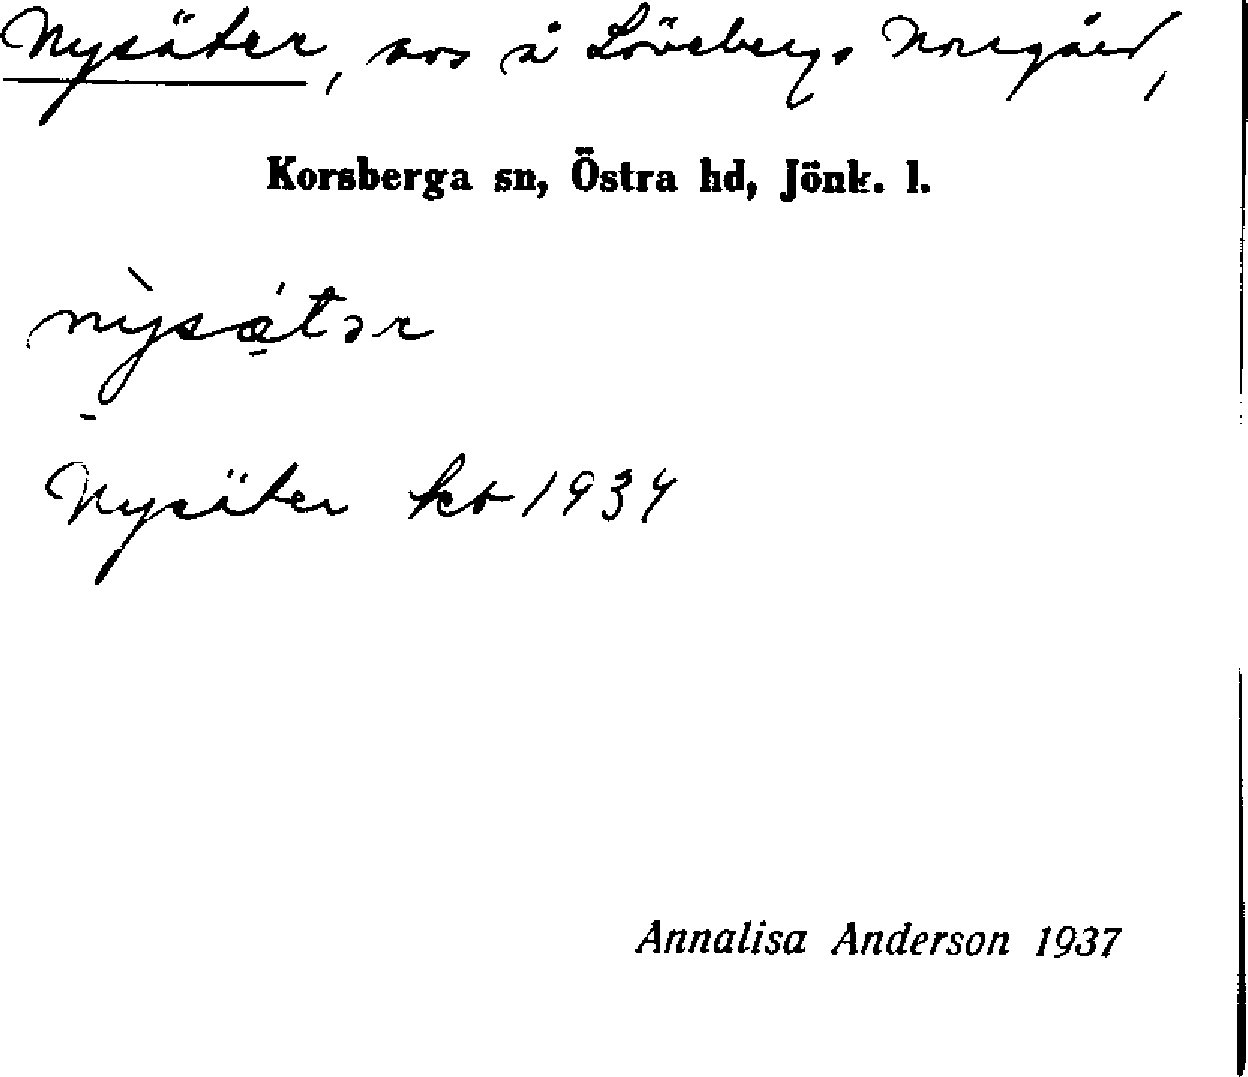 Nysäter, avs å Lövsbergs Norrgård,
Korsberga sn, Östra hd, Jönk. l.
nỳsätər
Nysäter kb 1934
Annalisa Anderson 1937